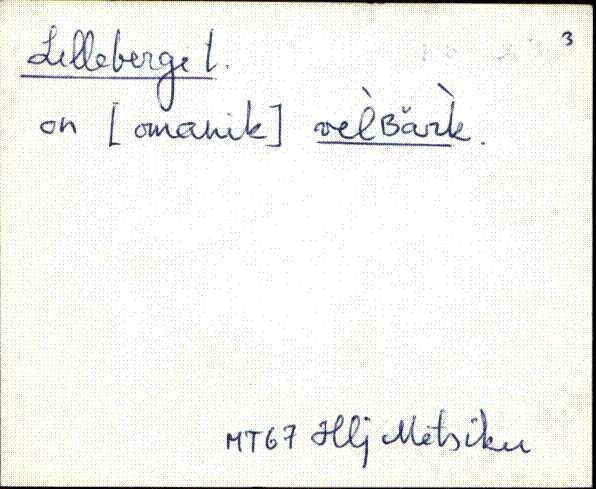 3
Lilleberge t.
on [omanik] vèlʙärk̀.
MT67 Hlj Metsiku